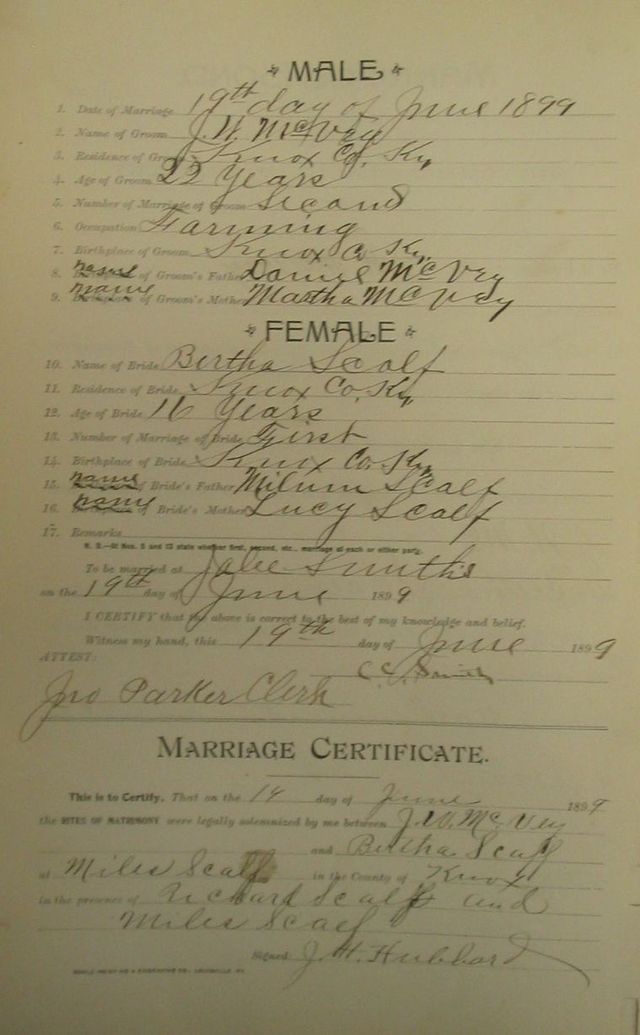 MALE
1. Date of Marriage 19th day of June 1899
2. Name of Groom J. W. McVey
3. Residence of Groom Knox Co, Ky
4. Age of Groom 22 Years
5. Number of Marriage of Groom Second
6. Occupation Farming
7. Birthplace of Groom Knox Co Ky
8. name of Groom's Father Daniel McVey
9. name of Groom's Mother Martha McVey
FEMALE
10. Name of Bride Bertha Scalf
11. Residence of Bride Knox Co, Ky
12. Age of Bride 16 Years
13. Number of Marriage of Bride First
14. Birthplace of Bride Knox Co. Ky
15. name of Bride's Father Milum Scalf
16. name of Bride's Mother Lucy Scalf
17. Remarks
N. B.—At Nos. 5 and 13 state whether first, second, etc., marriage of each or either party.
To be married at Smiths
on the 19th day of June 1899
I CERTIFY that the above is correct to the best of my knowledge and belief.
Witness my hand, this 19th day of June 1899
ATTEST:
C. C. Smith
Jno Parker Clerk
MARRIAGE CERTIFICATE.
This is to Certify, That on the 19 day of June 1899
the RITES OF MATRIMONY were legally solemnized by me between J. W. McVey
and Bertha Scalf
at Miles Scalf in the County of Knox
in the presence of Richard Scalf and
Miles Scalf
Signed J. H. Hubbard